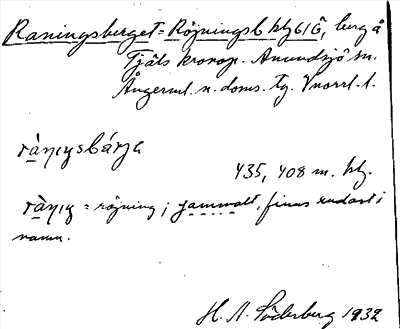 Raningsberget = Röjningsb. hlg 61G, berg å
Tjäls kronop. Anundsjö sn.
Ångerml. n. doms. tg. Vnorrl. l.
ràṇıŋsbárja
435, 408 m. htg.
ràṇıŋ = röjning; gammalt, finns endast i
namn.
H. A. Söderberg 1932